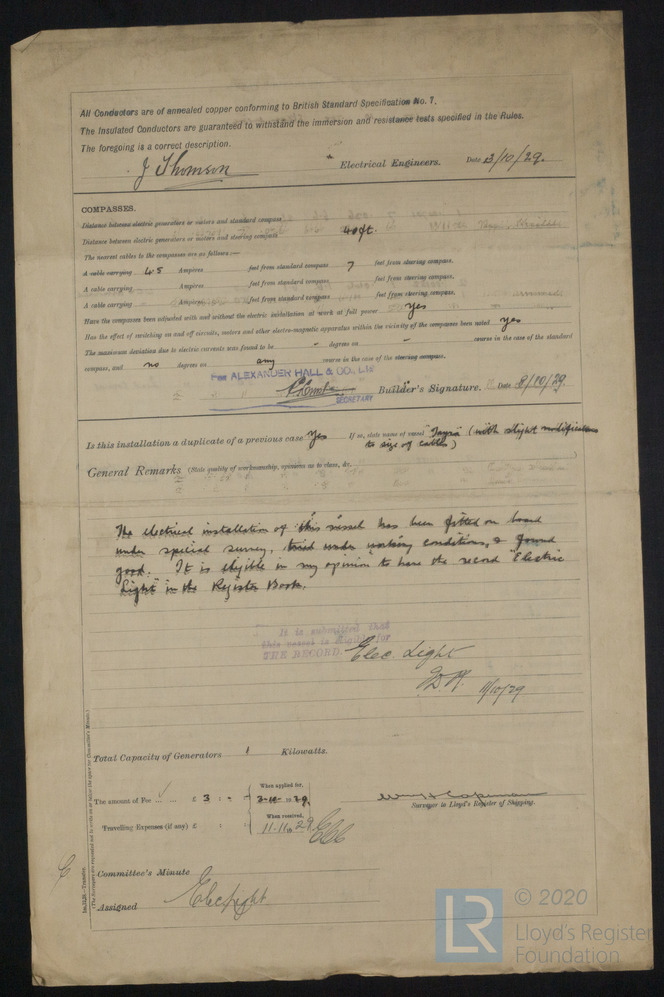 All Conductors are of annealed copper conforming to British Standard Specification No. 7.
The Insulated Conductors are guaranteed to withstand the immersion and resistance tests specified in the Rules.
The foregoing is a correct description.
J Thomson Electrical Engineers. Date 3/10/29.
COMPASSES.
Distance between electric generators or motors and standard compass
Distance between electric generators or motors and steering compass 40ft.
The nearest cables to the compasses are as follows:—
A cable carrying 4.5 Ampères feet from standard compass 7 feet from steering compass.
A cable carrying - Ampères feet from standard compass feet from steering compass.
A cable carrying - Ampères - feet from standard compass - feet from steering compass.
Have the compasses been adjusted with and without the electric installation at work at full power yes
Has the effect of switching on and off circuits, motors and other electro-magnetic apparatus within the vicinity of the compasses been noted yes
The maximum deviation due to electric currents was found to be - degrees on - course in the case of the standard
compass, and no degrees on any course in the case of the steering compass.
For ALEXANDER HALL & CO. LTD
SECRETARY Builder's Signature. Date 8/10/29.
Is this installation a duplicate of a previous case Yes If so, state name of vessel (with slight modifications
to size of cables)
General Remarks (State quality of workmanship, opinions as to class, &c.
The electrical installation of this vessel has been fitted on board
under special survey, tried under working conditions, & found
good. It is eligible in my opinion to have the record "Electric
Light" in the Register Book.
It is submitted that
this vessel is eligible for
THE RECORD. Elec. Light
11/10/29
Total Capacity of Generators 1 Kilowatts.
The amount of Fee ... ... £ 3 : - : - When applied for, 3-10-1929.
Surveyor to Lloyd's Register of Shipping.
Travelling Expenses (if any) £ : : When received, 11.11.1929
Committee's Minute
Assigned Elec Light
LR © 2020
Lloyd's Register
Foundation